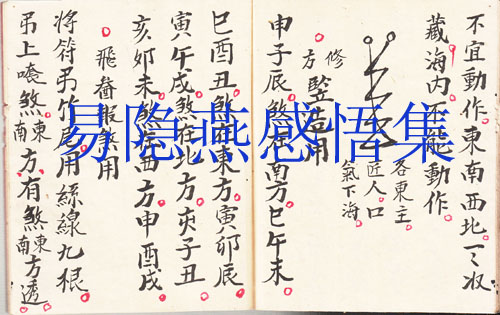 不宜動作東南西北一々收
藏海內不能動作
各東主
匠人口
氣下海
修方
竪造用
申子辰煞在南方巳午未
巳酉丑煞在東方寅卯辰
寅午戌煞在北方亥子丑
亥卯未煞在西方申酉戌
飛報煞用
將符弔竹尾用絲線九根
弔上煞東南方有煞東南方透
易隐燕感悟集